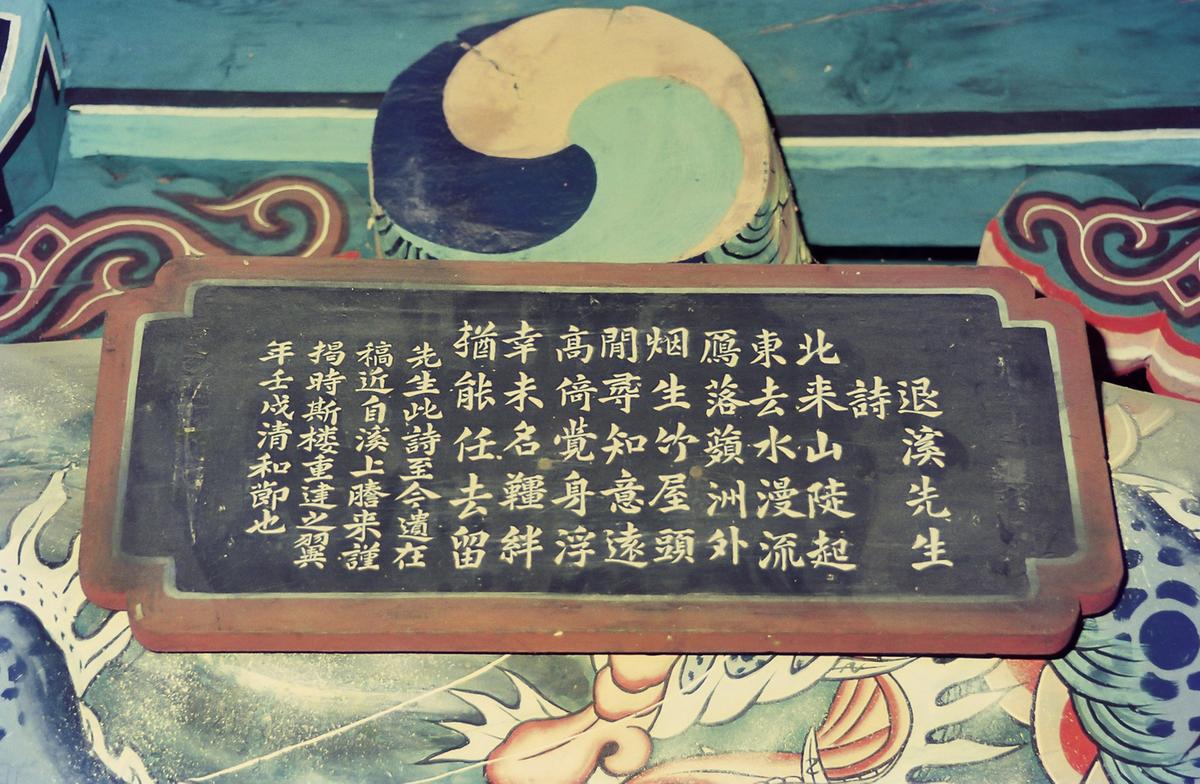 退溪先生
詩
北来山陡起
東去水漫流
鴈落蘋洲外
烟生竹屋頭
閒尋知意遠
高倚覺身浮
幸未名韁絆
猶能任去留
先生此詩至今遺在
稿近自溪上謄来謹
揭時斯楼重建之翌
年壬戌清和節也